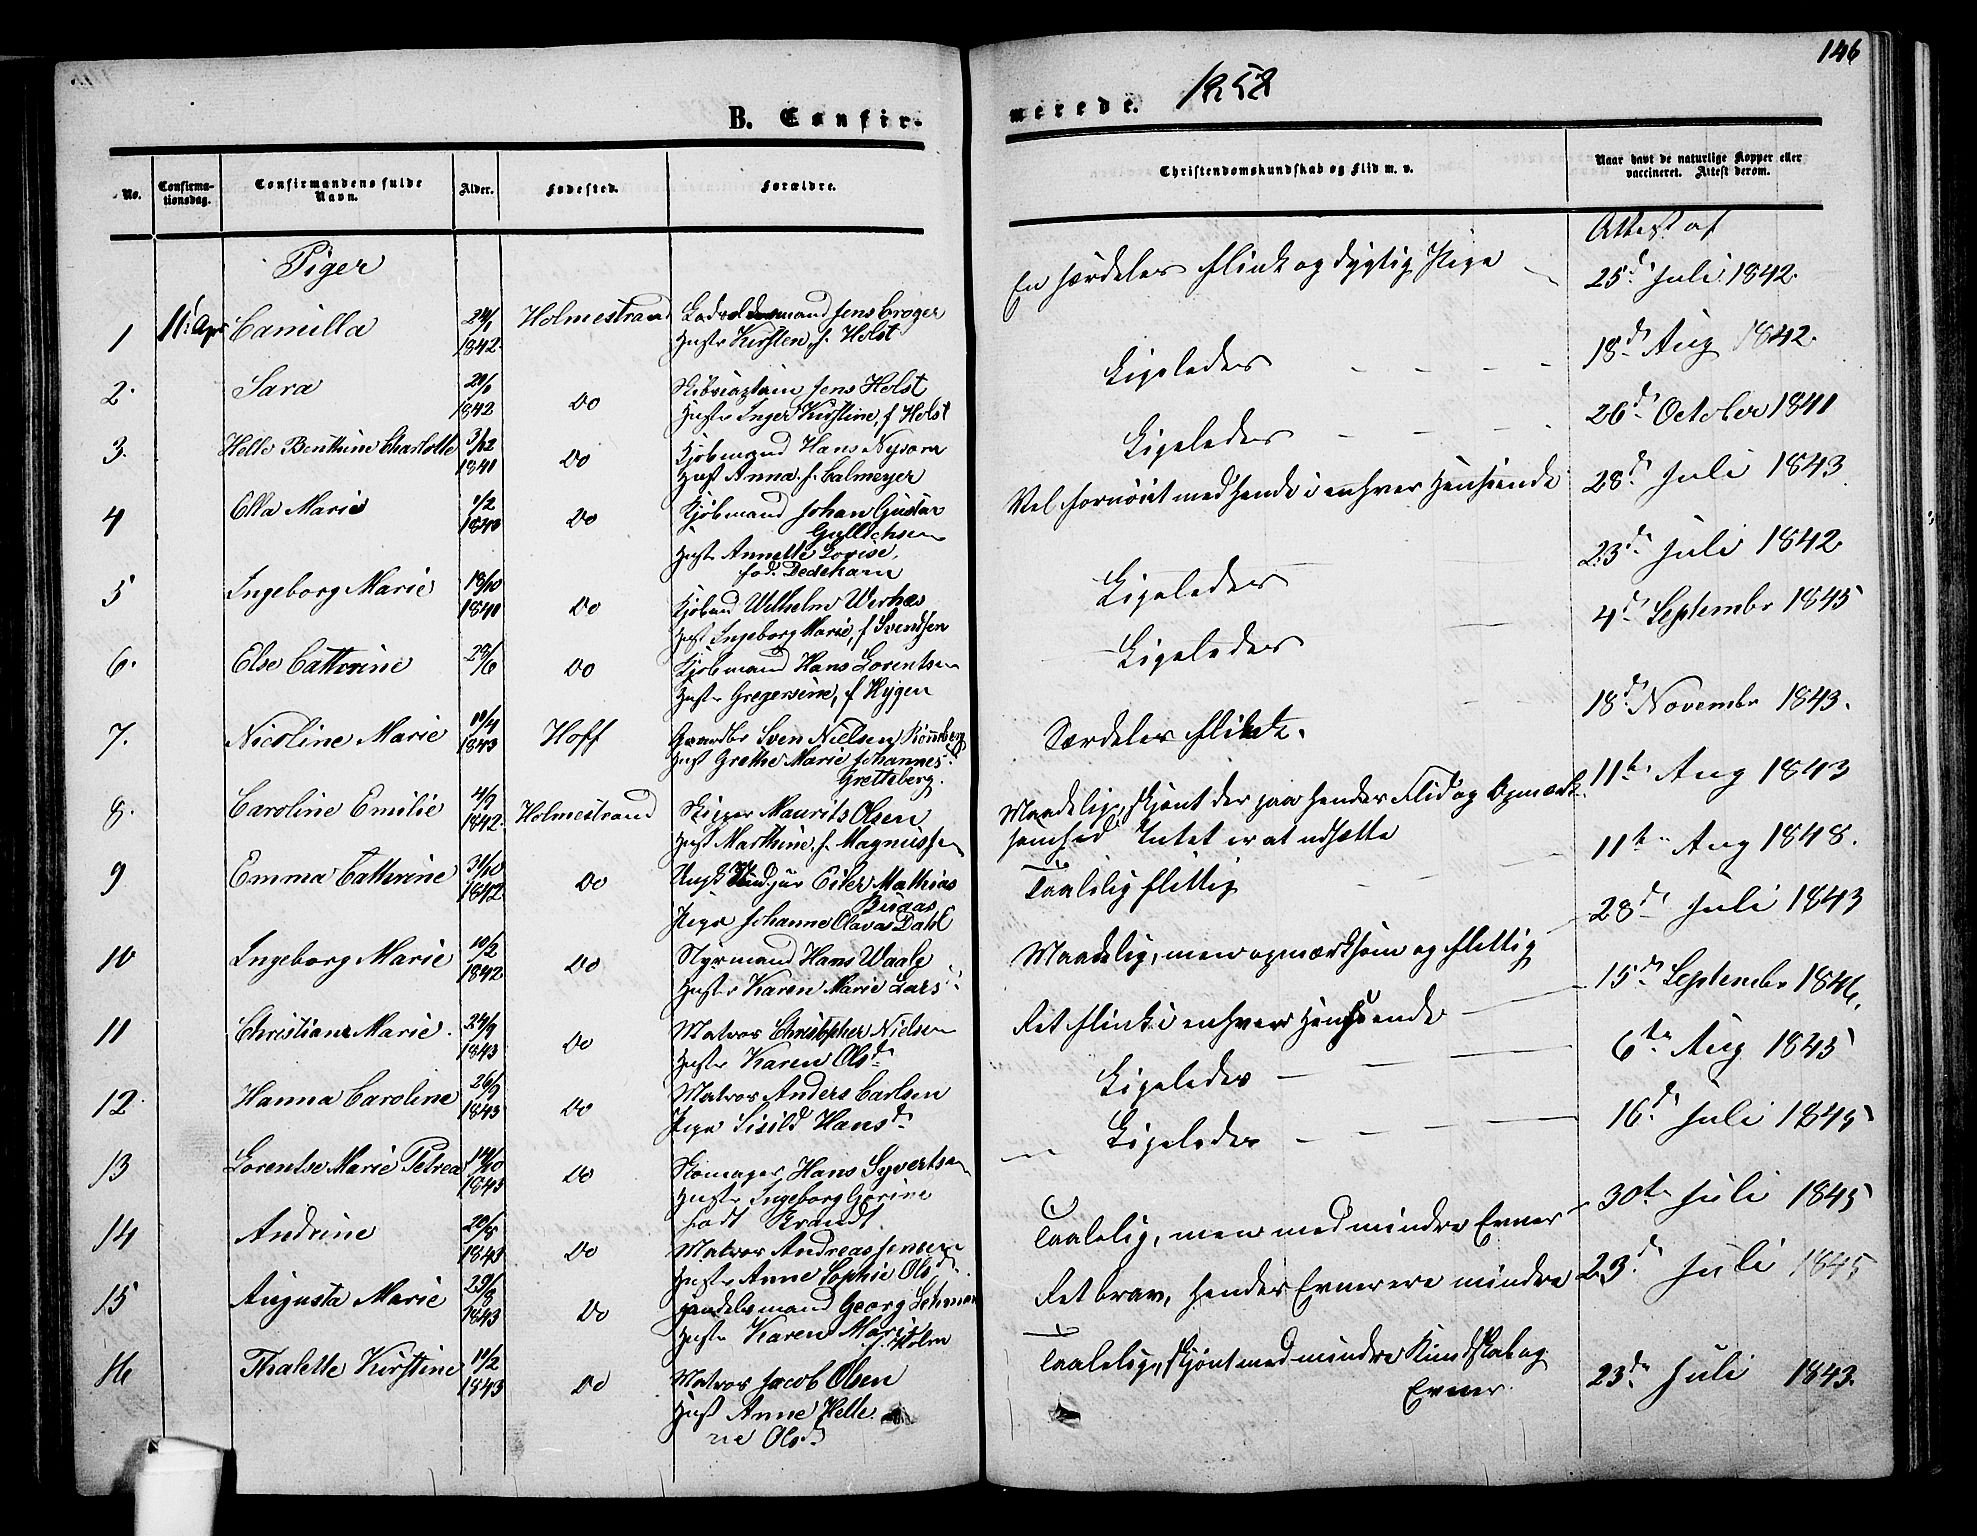 146
B. Confirmerede. 1858
No.
Confirmationsdag.
Confirmandens fulde Navn.
Alder.
Fødested.
Forældre.
Christendomskundskab og Flid m. v.
Naar havt de naturlige Kopper eller vaccineret. Attest derom.
Piger
Attest af
1 11t Apr Camilla 24/1 1842 Holmestrand Jens Crøger
Hustr Kirsten, f. Holst
En særdeles flink og dygtig Pige
25d Juli 1842.
2. Sara 1842 Do Skibscaptain Jens Holst
Hustr Inger Kirstine, f Holst
Ligeledes
18d Aug 1842.
3. Helle Benthine Charlotte 3/12 1841 Do Kjøbmand Hans
Hust Anna f. Calmeyer
Ligeledes
26d October 1841
4 Marie 1/2 Do Kjøbmand Johan Gustav
Gullichsen
Hustr Annette Lovise,
fød. Dedekam
Vel fornøiet med hende i enhver Henseende
28d Juli 1843
5 Ingeborg Marie 18/10 1841 Do Wilhelm
Hust Ingeborg Marie, f Svendsen
Ligeledes
23d Juli 1842
6. Else Cathrine 29/6 Do Kjøbmand Hans Lorentsen
Hustr Gregersine, f Hygen
Ligeledes
4d Septembr 1845
7. Nicoline Marie 1843 Hoff Gaardbr Sven Nielsen Rønneberg
Hust Grethe Marie Johannesd
Gretteberg.
Særdeles flink.
18d Novembr 1843.
8. Caroline Emilie 4/9 1842. Holmestrand Skipper Maurits Olsen
Hust Marthine, f. Magnussen
Maadelig, skjønt der paa hendes Flid og Opmærk-
somhed Intet er at udsætte
11te Aug 1843
9 Emma Cathrine 31/10 1842 Do Eiler Mathias
Pige Johanne Olava Dahl
Taalelig flittig
11te Aug 1848.
10 Ingeborg Marie 10/2 1842 Do Styrmand Hans Waale
Hustr Karen Marie Larsd
Maadelig, men opmærksom og flittig
28d Juli 1843
11 Christiane Marie. 24/9 1843 Do Matros Christopher Nielsen
Hustr Karen Olsd
Ret flink i enhver Henseende
15d Septembr 1846.
12. Hanna Caroline 26/9 1843 Do Matros Anders Carlsen
Pige Sisild Hansd
Ligeledes
6te Aug 1845
13 Lorentse Marie Petrea 14/10 1843 Do Skomager Hans Syvertsen
Hustr Ingeborg Gorine
født Brandt
Ligeledes
16d Juli 1845
14 Andrine 20/8 Do Matros Andreas Jensen
Hustr Anne Sophie Olsd
Taalelig, men med mindre Evner
30te Juli 1845
15 Augusta Marie 1843 Do Handelsmand Georg Lehman
Hustr Karen Marie
f. Holm
Ret brav, hendes Evner ere mindre
23d Juli 1845
16 Thalette Kirstine 11/2 1843 Do Matros Jacob Olsen
Hust Anne Helle
ne Olsd
Taalelig, skjønt med mindre Kundskab og
Evner.
23de Juli 1843.